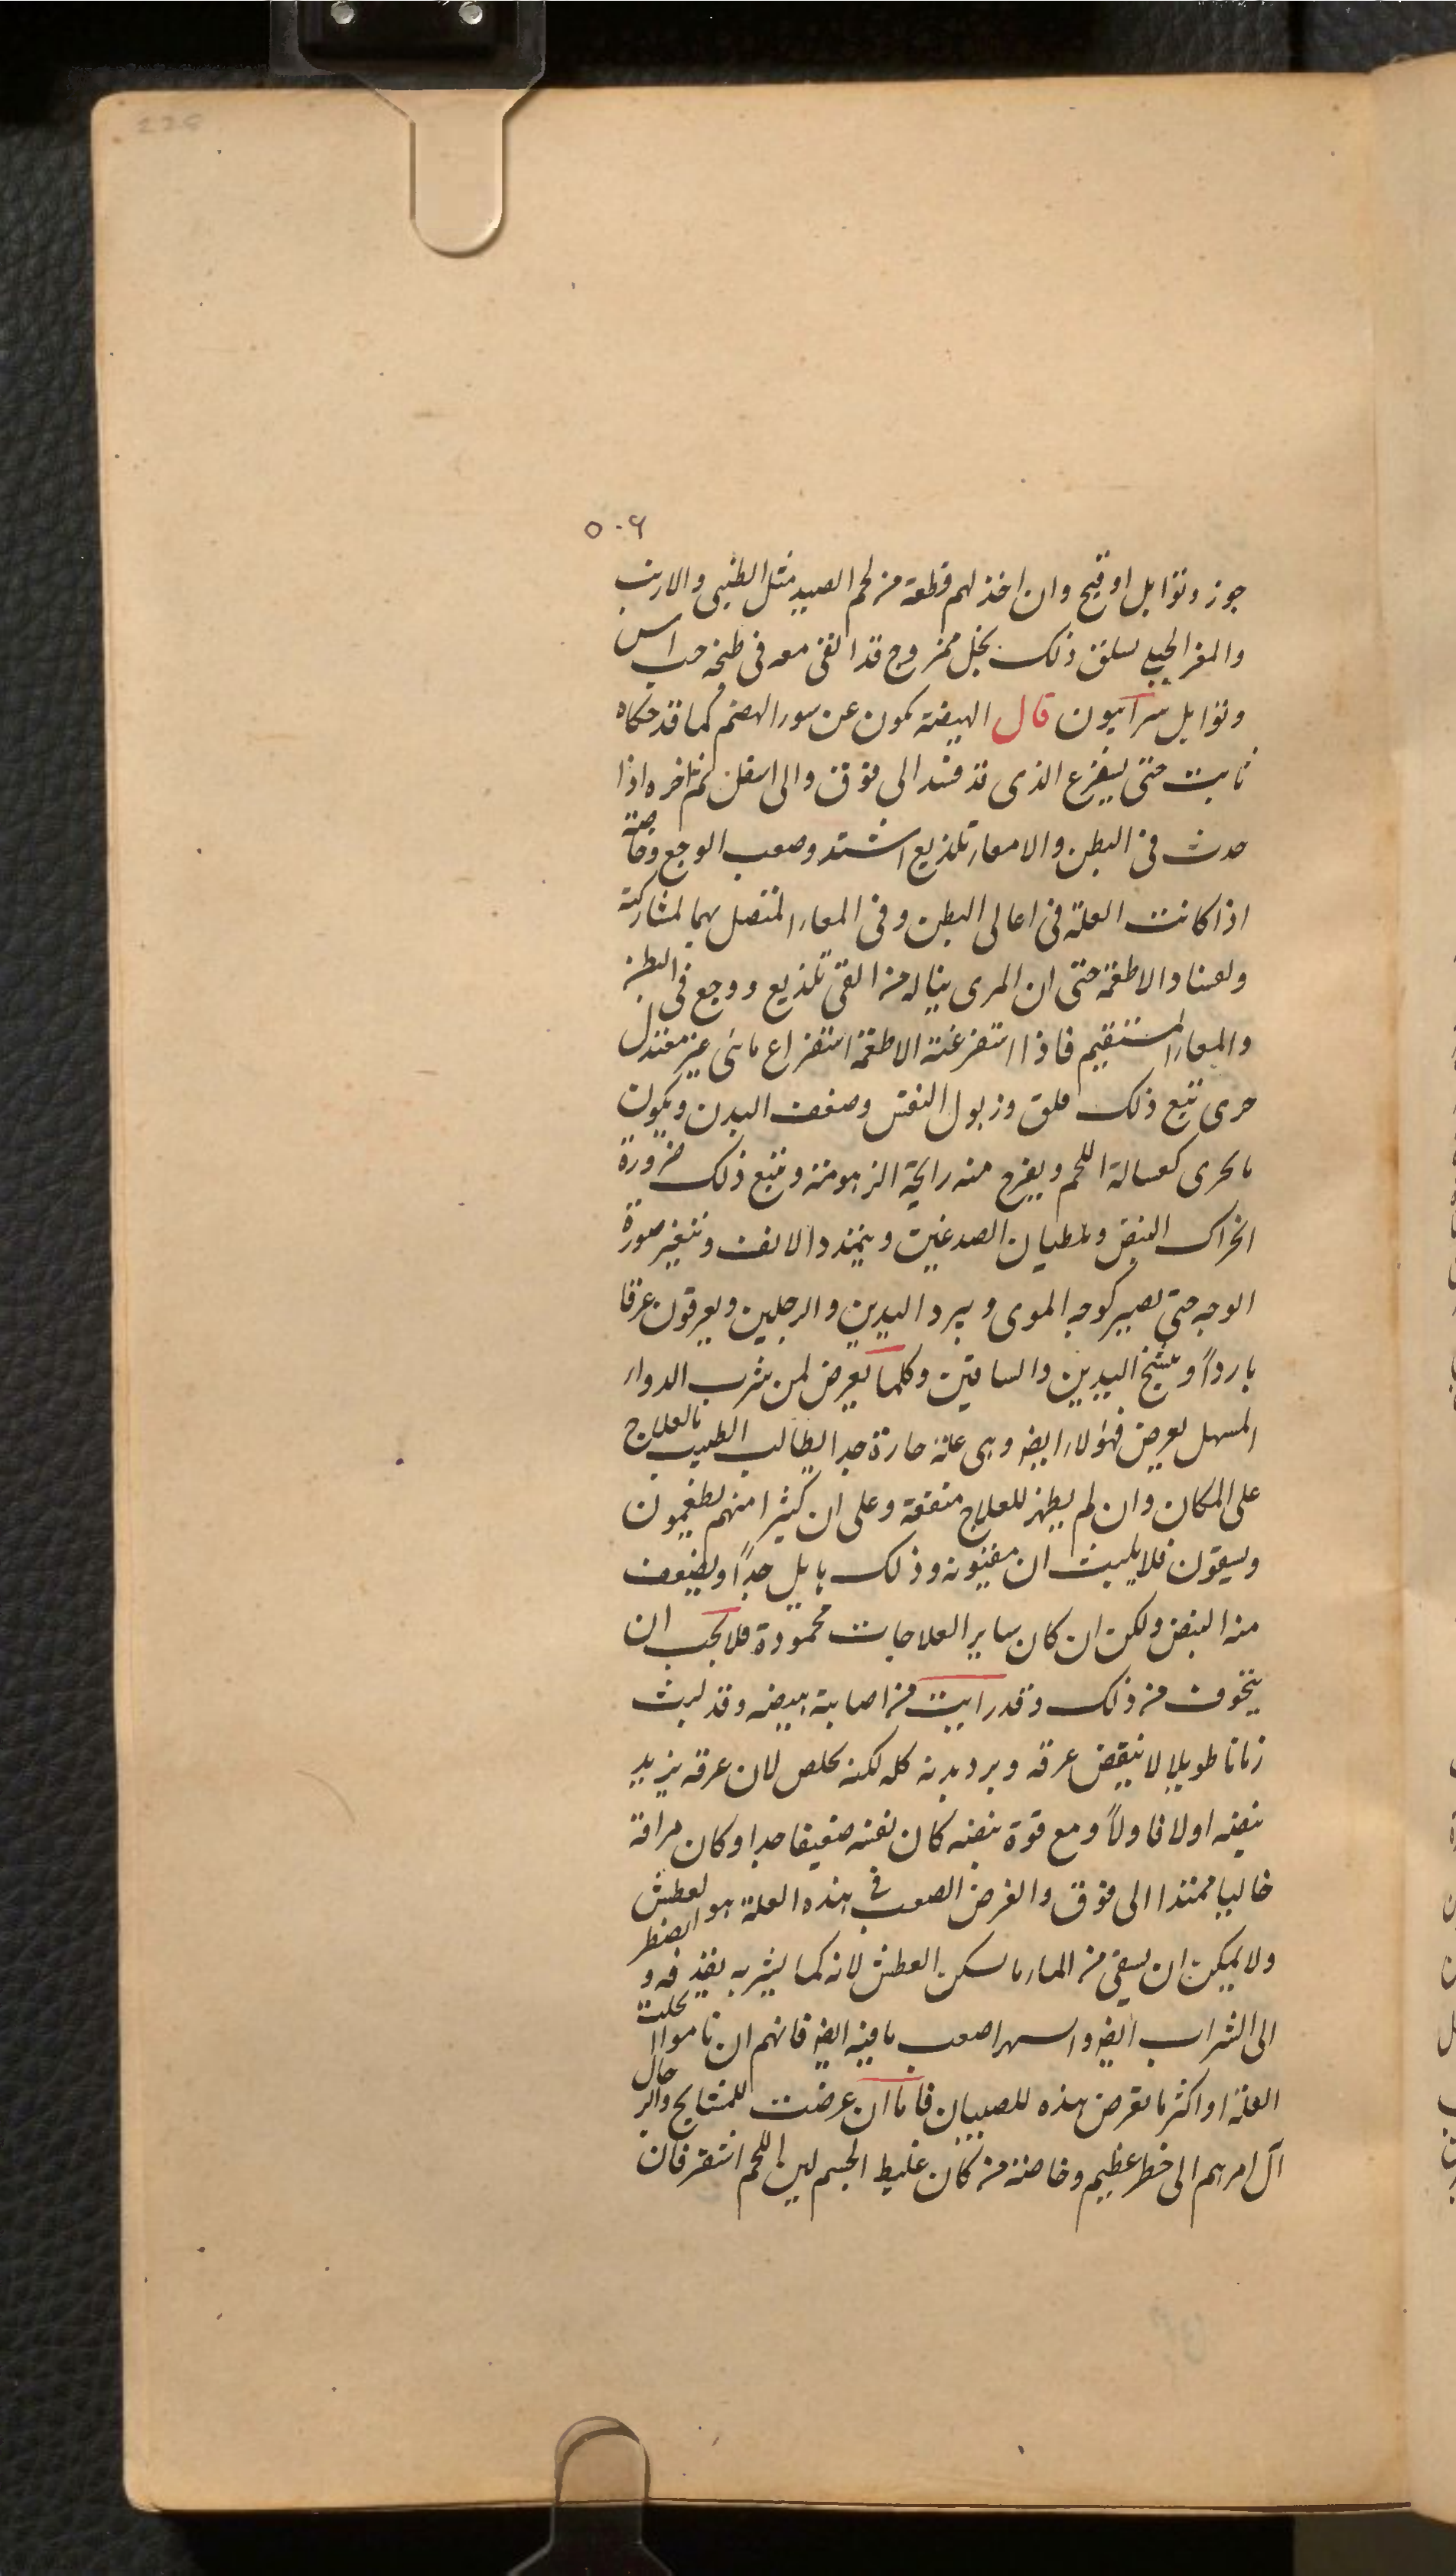 ٥٠٦
جوز وتوابل او قبج وان اخذ لهم قطعة من لحم الصيد مثل الظبى والارنب
والمعز الجبلى يسلق ذلك بخل ممزوج قد القى معه فى طبخه حب اس
وتوابل سرابيون قال الهيضة يكون عن سور الهضم كما قد حكاه
ثابت حتى يفرغ الذى قد فسد الى فوق والى اسفل ثم تاخره اذا
حدث فى البطن والامعاء تلذيع اشتد وصعب الوجع وخاصة
اذا كانت العلة فى اعالى البطن وفى المعاء المتصل بها لمشاركة
ولفساد الاطعمة حتى ان المرى يناله من القى تلذيع ووجع فى البطن
والمعاء المستقيم فاذا استفرغت الاطعمة استفراغ ماشى غير معتدل
حرى تتبع ذلك قلق وذبول النفس وضعف البدن ويكون
ما يجرى كغسالة اللحم ويفوح منه رايحة الزهومة وتتبع ذلك ضرورة
انخراك النبض ويلطيان الصدغين ويتمدد الانف وتتغير صورة
الوجه حتى يصير كوجه الموتى ويبرد اليدين والرجلين ويعرقون عرقا
باردًا ويتشنج اليدين والساقين وكلما يعرض لمن شرب الدواء
المسهل يعرض فهولاء ايضا وهى علة حارة جدا يطالب الطبيب بالعلاج
على المكان وان لم يظهر للعلاج منفعة وعلى ان كثيرا منهم يطعمون
ويسقون فلا يلبث ان يقيئونه وذلك هايل جدًا ويضعف
منه النبض ولكن ان كان ساير العلاجات محمودة فلا يجب ان
يتخوف من ذلك وقد رايت من اصابته هيضه وقد لبث
زمانا طويلا لا ينقض عرقه وبرد بدنه كله لكنه تخلص لان عرقه يزيد
نبضه اولا فاولًا ومع قوة نبضه كان نفسه ضعيفا جدا وكان مراقة
خاليا ممتدا الى فوق والعرض الصعب فى هذه العلة هو العطش
ولا يمكن ان يسقى من الماء ما يسكن العطش لانه كما يشربه يقذفه ويضطر
الى الشراب ايضا والسهر اصعب ما فيه ايضا فانهم ان ناموا انحلت
العلة او اكثر ما تعرض هذه للصبيان فاما ان عرضت للمشايخ والرجال
آل امرهم الى خطر عظيم وخاصة من كان غليظ الجسم لين اللحم اشقر فان